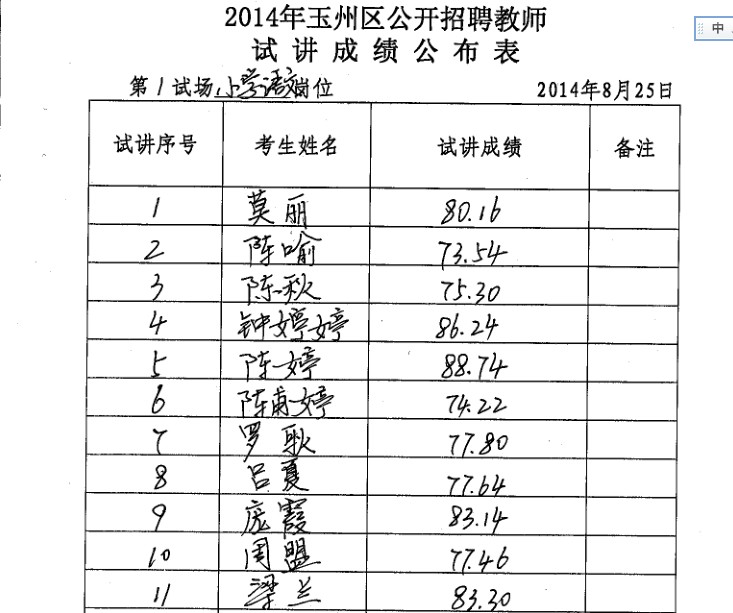 2014年玉州区公开招聘教师
试讲成绩公布表
第1试场小学语文岗位 2014年8月25日
试讲序号 考生姓名 试讲成绩 备注
1 莫丽 80.16
2 陈喻 73.54
3 陈秋 75.30
4 钟婷婷 86.24
5 陈婷 88.74
6 陈甫婷 74.22
7 罗耿 77.80
8 吕夏 77.64
9 庞霞 83.14
10 周盟 77.46
11 梁兰 83.30
中